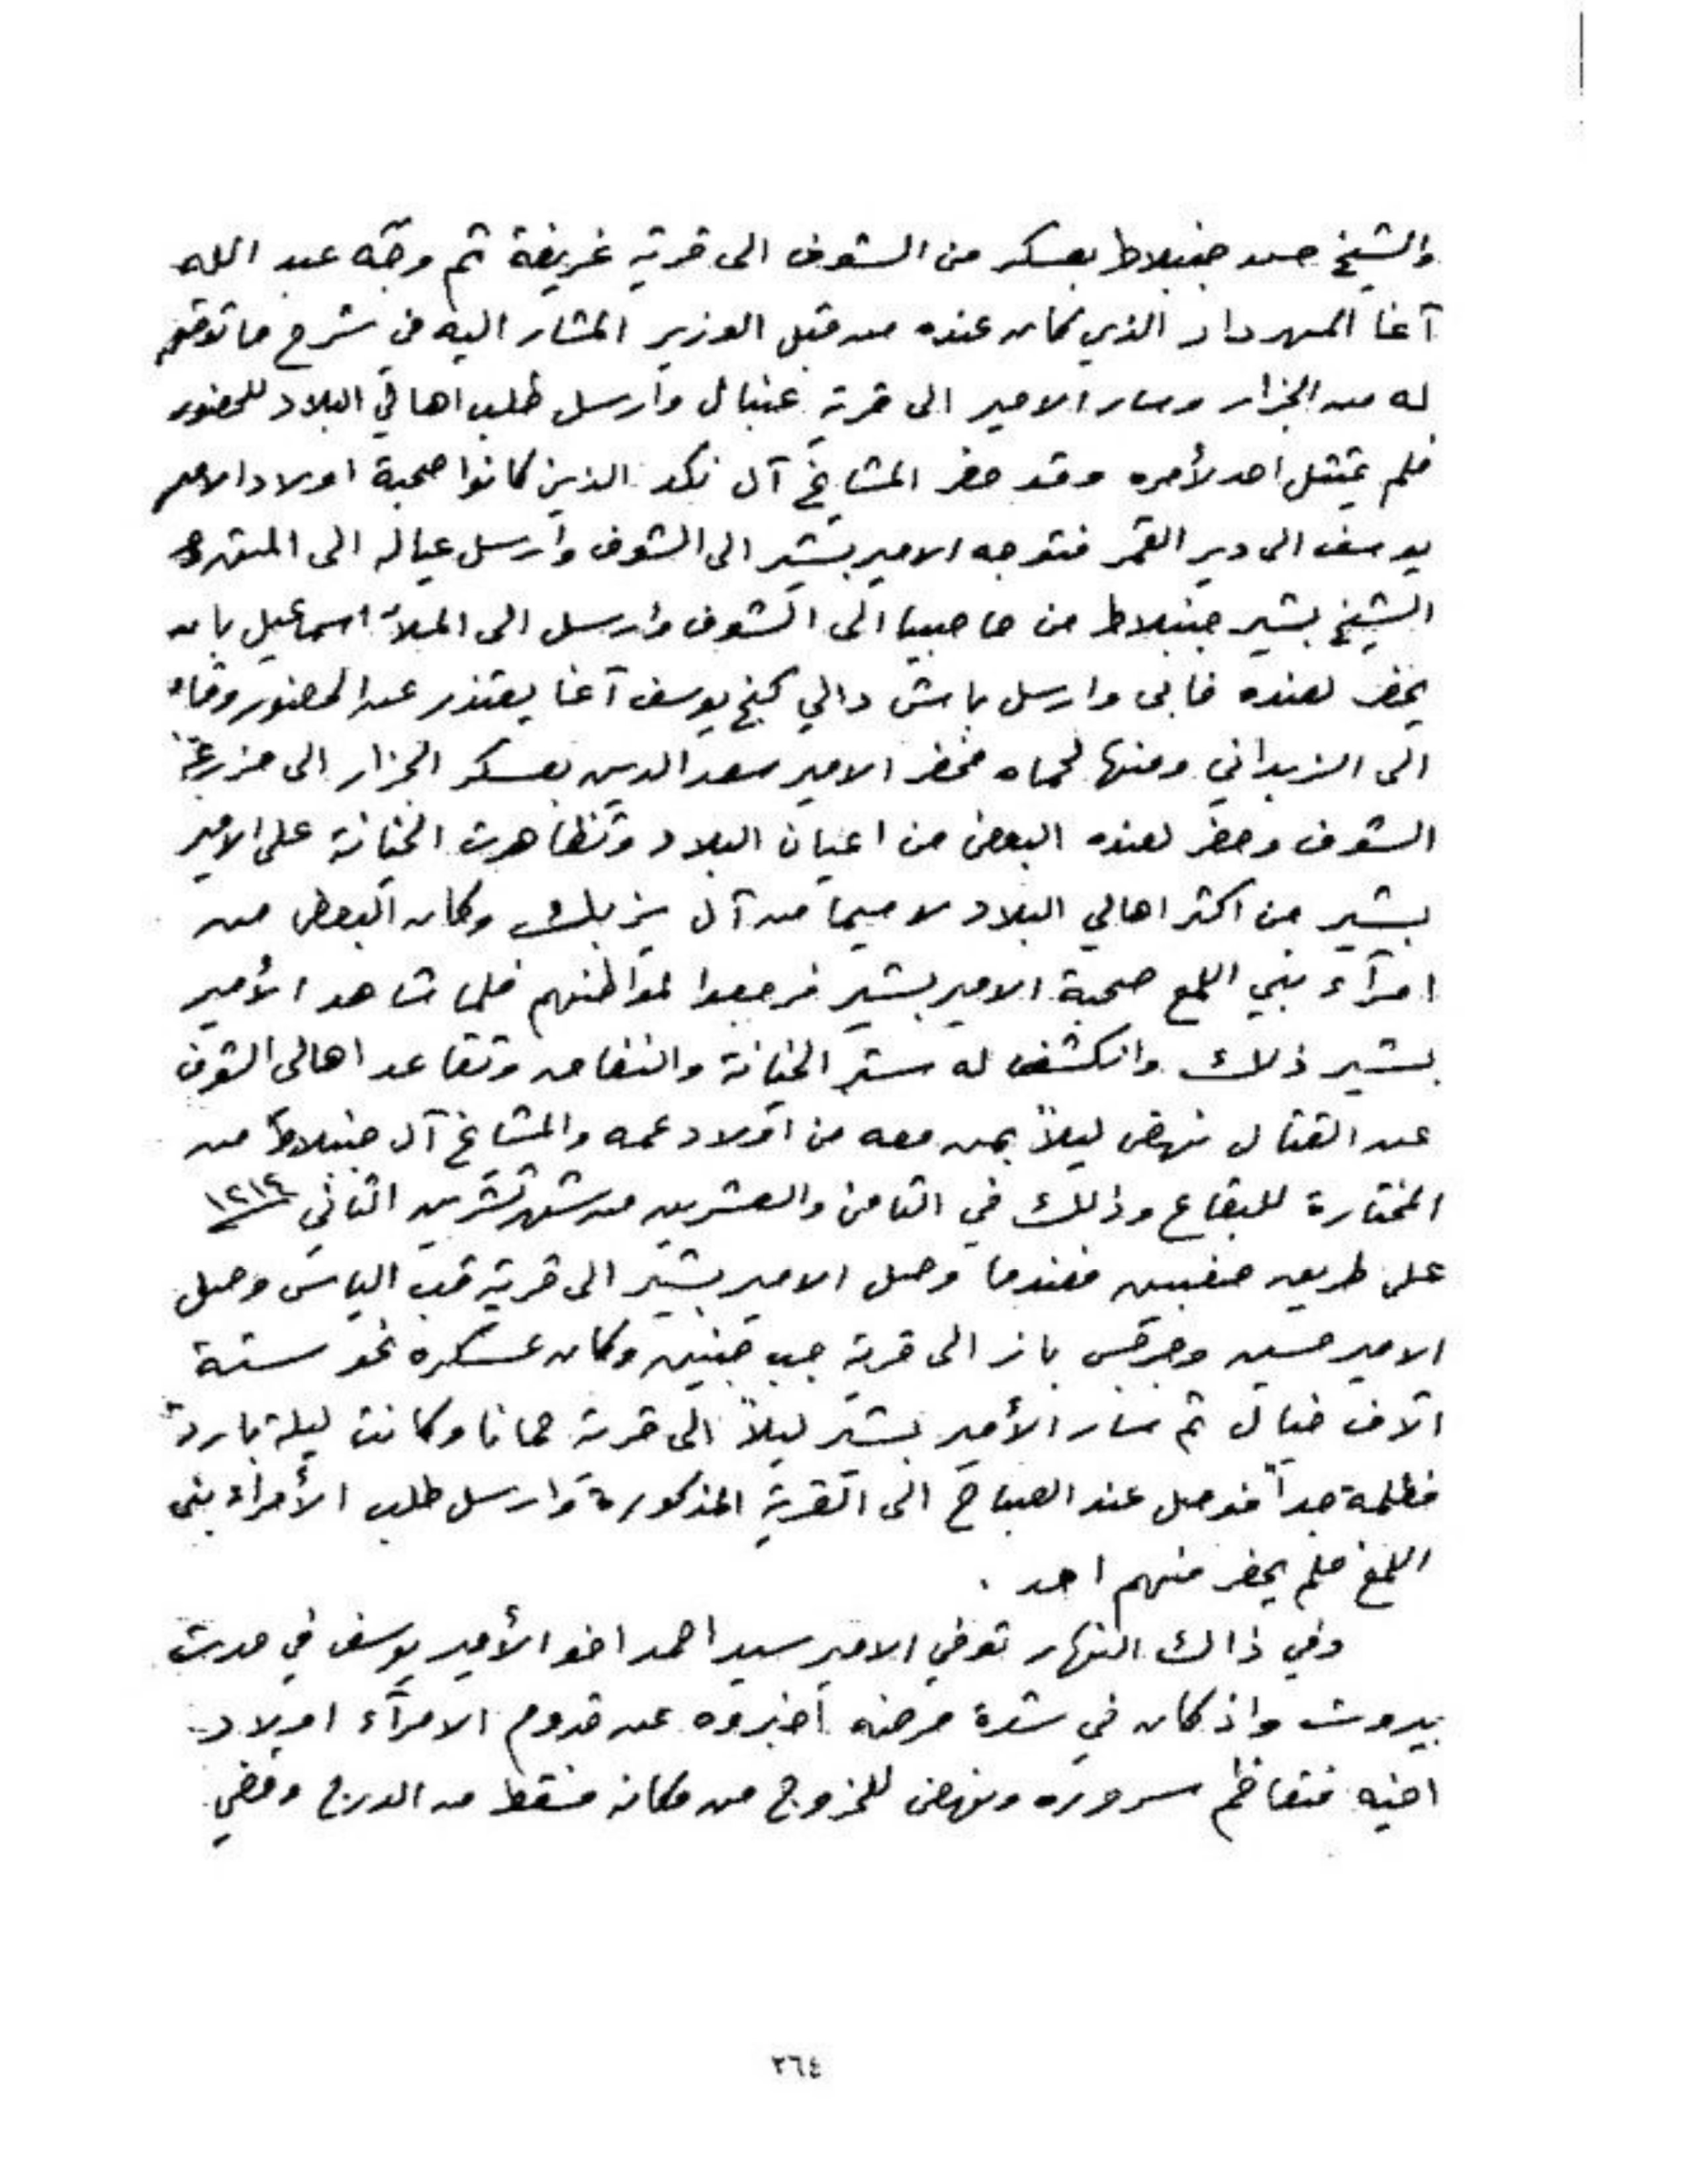 والشيخ حسن جنبلاط بعسكر من الشوف الى قرية غريفة ثم وجّه عبد الله
آغا المهردار الذي كان عنده من قبل الوزير المشار اليه في شرح ما توقع
له من الجزار وسار الامير الى قرية عنبال وارسل طلب اهالي البلاد للحضور
فلم يمتثل احد لأمره وقد حضر المشايخ آل نكد الذين كانوا صحبة اولاد الامير
يوسف الى دير القمر فتوجه الامير بشير الى الشوف وارسل عياله الى المتن و
الشيخ بشير جنبلاط من حاصبيا الى الشوف وارسل الى الملا اسماعيل بان
يحضر لعنده فابى وارسل باش دالي كنج يوسف آغا يعتذر عن الحضور وقام
الى الزبداني ومنها لحماه فحضر الامير سعد الدين بعسكر الجزار الى مزرعة
الشوف وحضر لعنده البعض من اعيان البلاد وتظاهرت الخيانة على الامير
بشير من اكثر اهالي البلاد لا سيما من آل يزبك وكان البعض من
امرآء بني اللمع صحبة الامير بشير فرجعوا لمواطنهم فلما شاهد الأمير
بشير ذلك وانكشف له ستر الخيانة والنفاق وتقاعد اهالي الشوف
عن القتال نهض ليلاً بمن معه من اولاد عمه والمشايخ آل جنبلاط من
المختارة للبقاع وذلك في الثامن والعشرين من شهر تشرين الثاني ١٢١٤
على طريق صغبين فعندما وصل الامير بشير الى قرية قب الياس وصل
الامير حسين وجرجس باز الى قرية جب جنين وكان عسكره نحو ستة
الآف خيال ثم سار الأمير بشير ليلاً الى قرية حمانا وكانت ليلة باردة
مظلمة جداً فوصل عند الصباح الى القرية المذكورة وارسل طلب الأمراء بني
اللمع فلم يحضر منهم احد .
وفي ذالك النهار توفي الامير سيد احمد اخو الأمير يوسف في مدينة
بيروت واذ كان في شدة مرضه اخبروه عن قدوم الامرآء اولاد
اخيه فتعاظم سروره ونهض للخروج من مكانه فسقط من الدرج وقضي
٢٦٤